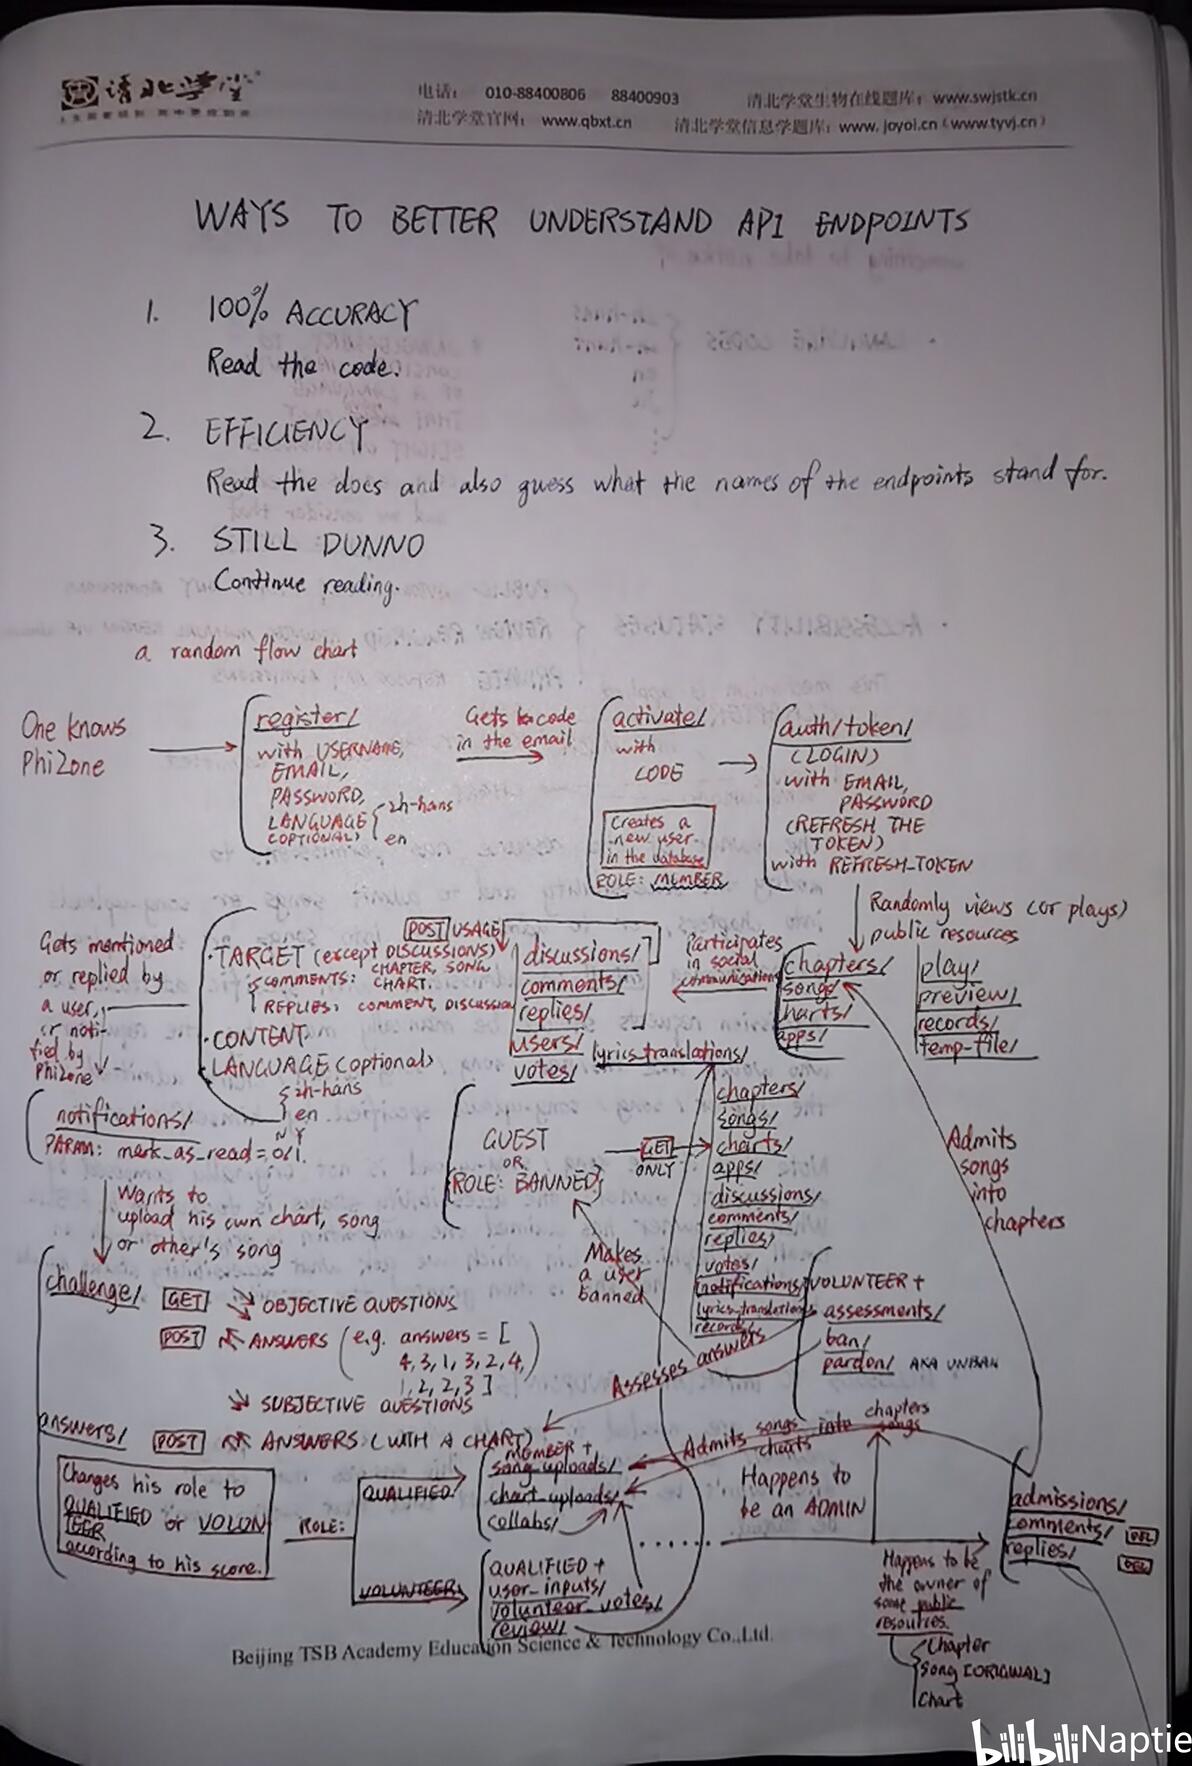 清北学堂
电话: 010-88400806 88400903 清北学堂生物在线题库: www.swjstk.cn
清北学堂官网: www.qbxt.cn 清北学堂信息学题库: www.joyoi.cn (www.tyvj.cn)
WAYS TO BETTER UNDERSTAND API ENDPOINTS
1. 100% ACCURACY
Read the code.
2. EFFICIENCY
Read the docs and also guess what the names of the endpoints stand for.
3. STILL DUNNO
Continue reading.
a random flow chart
One knows
PhiZone
register/
with USERNAME,
EMAIL,
PASSWORD,
LANGUAGE
(OPTIONAL)
zh-hans
en
Gets code
in the email
activate/
with
CODE
Creates a
new user
in the database
ROLE: MEMBER
auth/token/
(LOGIN)
with EMAIL,
PASSWORD
(REFRESH THE
TOKEN)
with REFRESH_TOKEN
Randomly views (or plays)
public resources
chapters/
songs/
charts/
apps/
play/
preview/
records/
temp-file/
Participates
in social
communication
discussions/
comments/
replies/
users/
votes/
lyrics_translations/
POST USAGE
·TARGET (except DISCUSSIONS)
COMMENTS: CHAPTER, SONG
CHART.
REPLIES: COMMENT, DISCUSSION
·CONTENT
·LANGUAGE (optional)
zh-hans
en
Gets mentioned
or replied by
a user,
or noti-
fied by
PhiZone
notifications/
PARAM: mark_as_read=0/1.
N Y
GUEST
OR
ROLE: BANNED
GET
ONLY
chapters/
songs/
charts/
apps/
discussions/
comments/
replies/
votes/
notifications/
lyrics_translations/
records/
Admits
songs
into
chapters
Wants to
upload his own chart, song
or other's song
Makes
a user
banned
VOLUNTEER +
assessments/
ban/
pardon/ AKA UNBAN
challenge/
GET OBJECTIVE QUESTIONS
POST ANSWERS (e.g. answers = [
4, 3, 1, 3, 2, 4,
1, 2, 2, 3 ]
SUBJECTIVE QUESTIONS
answers/ POST ANSWERS (WITH A CHART)
Assesses answers
Admits songs into chapters
charts songs
Changes his role to
QUALIFIED or VOLUN
TEER
according to his score.
ROLE:
QUALIFIED
VOLUNTEER
MEMBER +
song_uploads/
chart_uploads/
collabs/
QUALIFIED +
user_inputs/
volunteer_votes/
review/
Happens to
be an ADMIN
admissions/
comments/ DEL
replies/ DEL
Happens to be
the owner of
some public
resources.
Chapter
Song [ORIGINAL]
Chart
Beijing TSB Academy Education Science & Technology Co.,Ltd.
bilibili Naptie